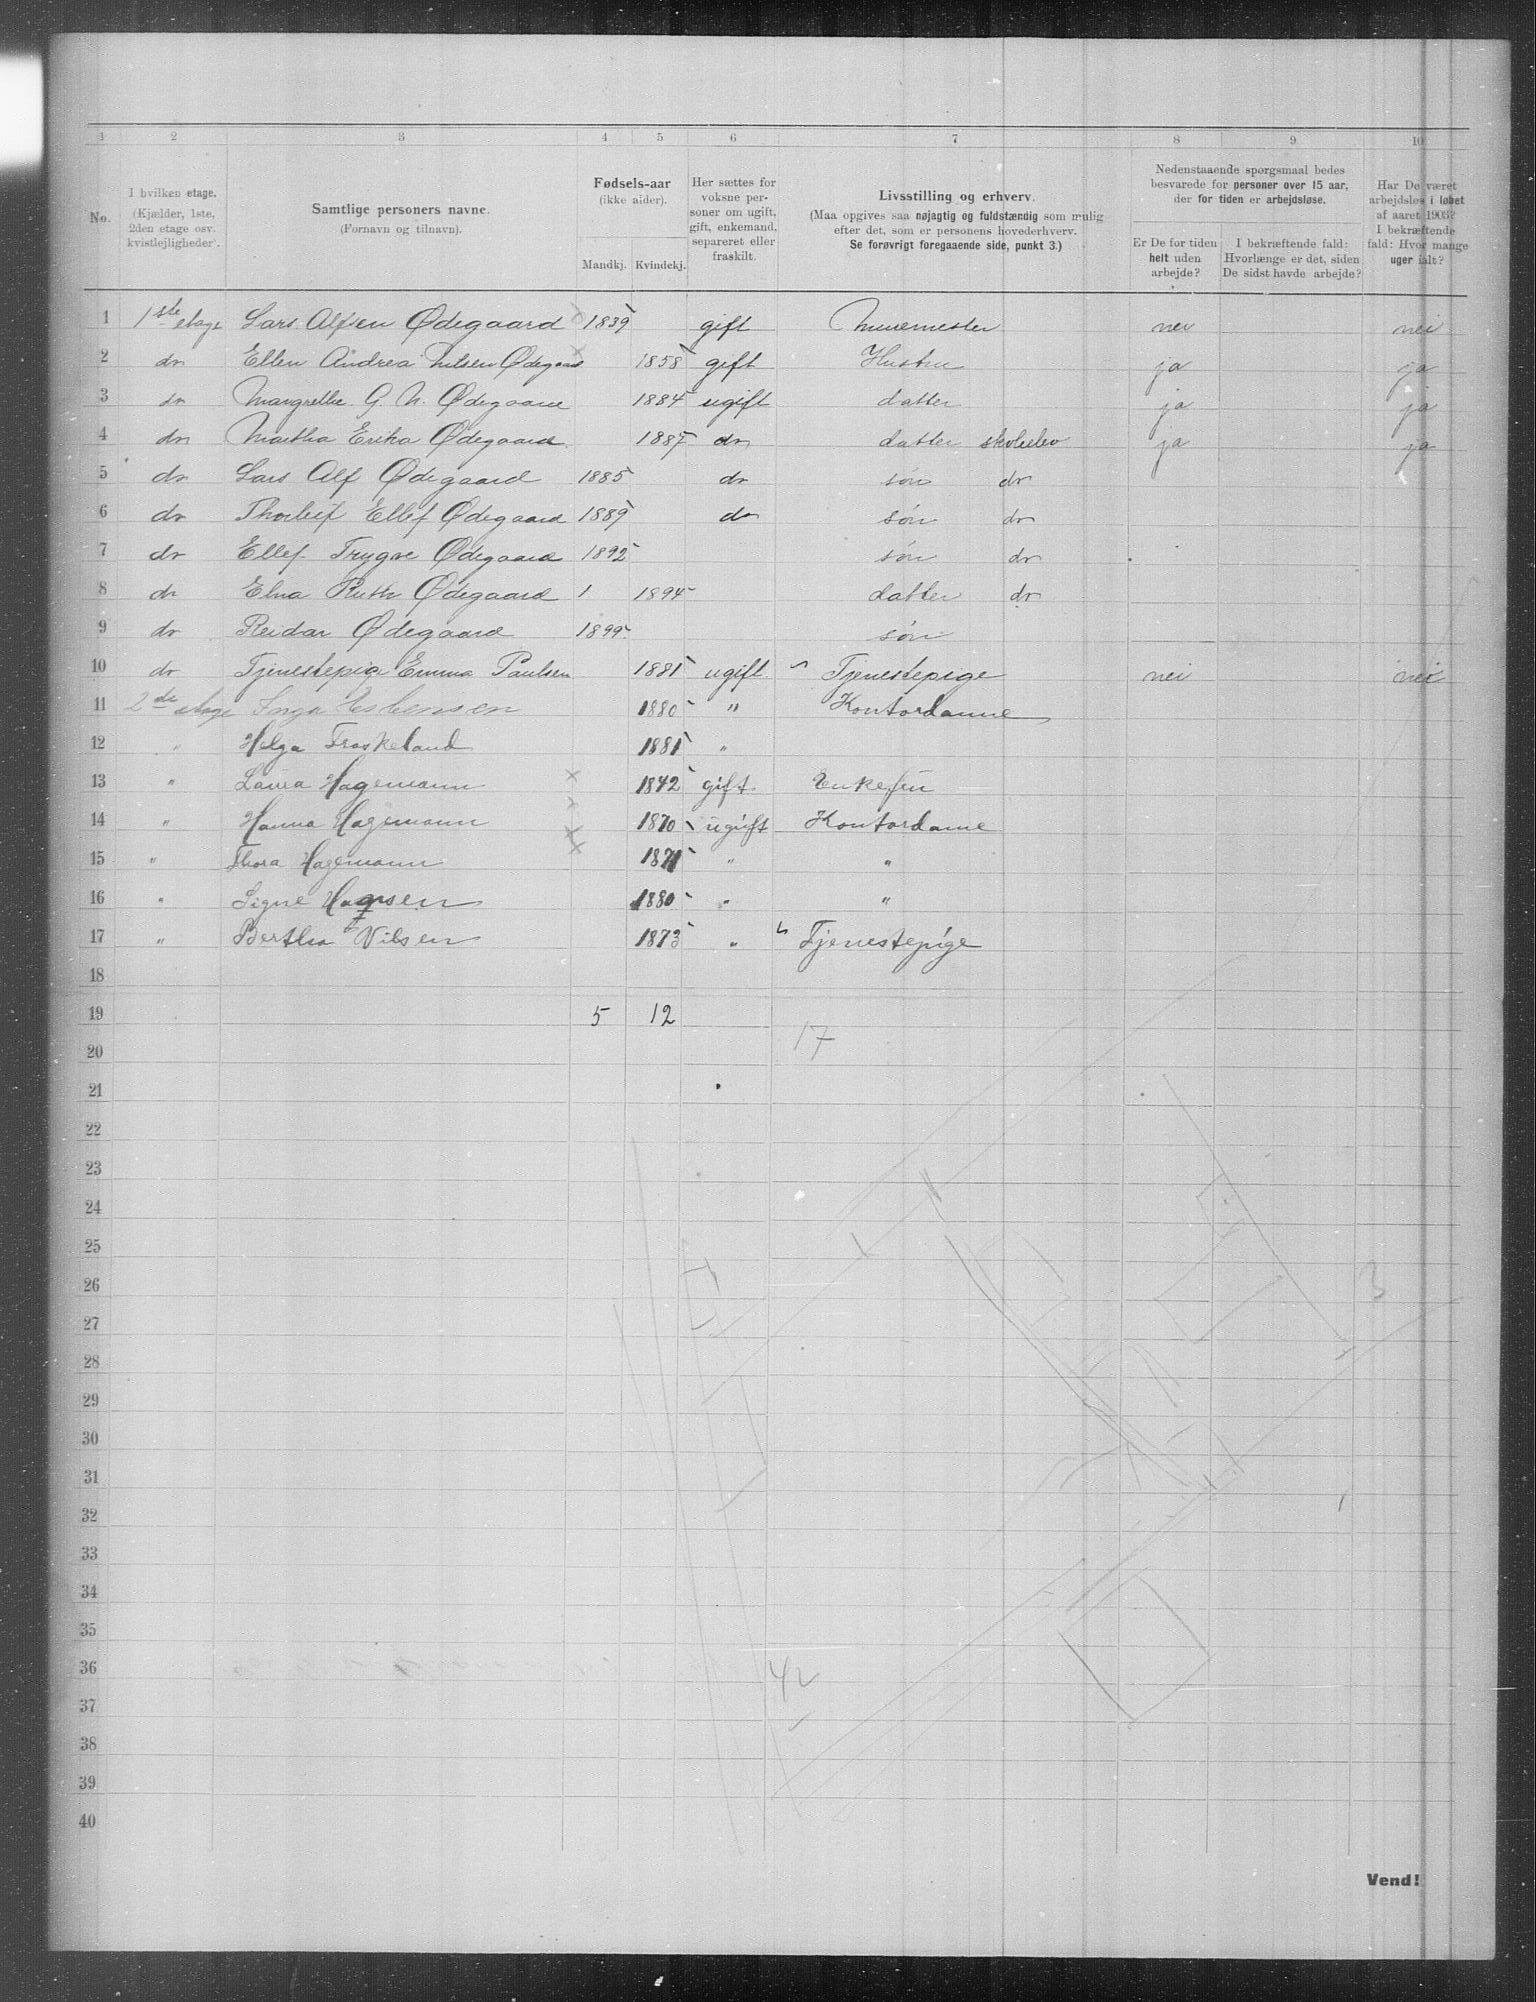 1 2 3 4 5 6 7 8 9 10
No.
I hvilken etage.
(Kjælder, 1ste,
2den etage osv.
kvistlejligheder).
Samtlige personers navne.
(Fornavn og tilnavn).
Fødsels-aar
(ikke alder).
Mandkj. Kvindekj.
Her sættes for
voksne per-
soner om ugift,
gift, enkemand,
separeret eller
fraskilt.
Livsstilling og erhverv.
(Maa opgives saa nøjagtig og fuldstændig som mulig
efter det, som er personens hovederhverv.
Se forøvrigt foregaaende side, punkt 3.)
Nedenstaaende spørgsmaal bedes
besvarede for personer over 15 aar,
der for tiden er arbejdsløse.
Er De for tiden
helt uden
arbejde?
I bekræftende fald:
Hvorlænge er det, siden
De sidst havde arbejde?
Har De været
arbejdsløs i løbet
af aaret 1903?
I bekræftende
fald: Hvor mange
uger ialt?
1 1ste etage Lars Alfsen Ødegaard 1839 gift Murermester nei nei
2 do Ellen Andrea Ødegaard 1858 gift Hustru ja ja
3 do Margrethe G. N. Ødegaard 1884 ugift datter ja ja
4 do Martha Erika Ødegaard 1887 do datter skoleelev ja ja
5 do Lars Alf Ødegaard 1885 do søn do
6 do Thorleif Ellef Ødegaard 1889 do søn do
7 do Ellef Trygve Ødegaard 1892 søn do
8 do Elna Ruth Ødegaard 1 1894 datter do
9 do Reidar Ødegaard 1899 søn
10 do Tjenestepige Emma Paulsen 1881 ugift Tjenestepige nei nei
11 2de etage Inga Esbensen 1880 " Kontordame
12 " Helga Traskeland 1881 "
13 " Laura Hagemann 1842 gift Enkefru
14 " Hanna Hagemann 1870 ugift Kontordame
15 " Thora Hagemann 1871 " "
16 " Signe 1880 " "
17 " Bertha Nilsen 1873 " Tjenestepige
18
19 5 12
17
20
21
22
23
24
25
26
3
27
28
29
30
31
32
33
34
35
36
42
37
38
39
40
Vend!